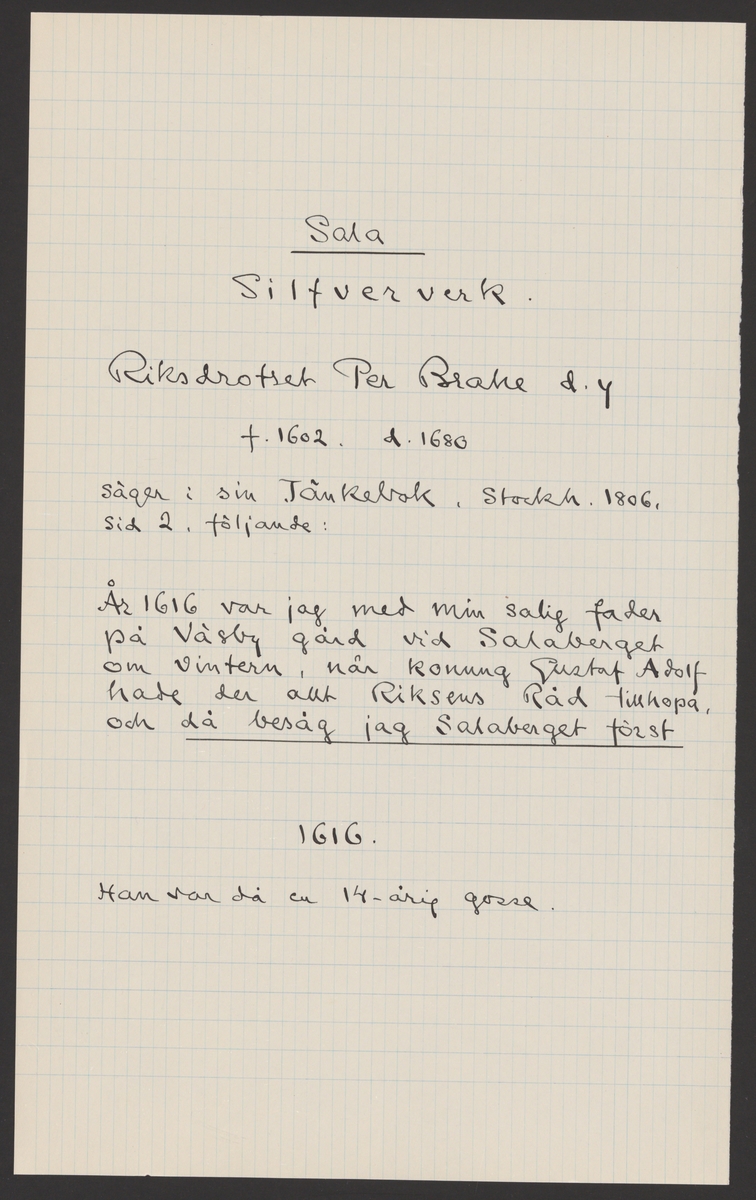 Sala
Silfververk.
Riksdrotset Per Brahe d.y
f. 1602. d. 1680
säger i sin Tänkebok, Stockh. 1806,
sid 2, följande:
År 1616 var jag med min salig fader
på Väsby gård vid Salaberget
om vintern, när konung Gustaf Adolf
hade der allt Riksens Råd tillhopa,
och då besåg jag Salaberget först
1616.
Han var då en 14-årig gosse.